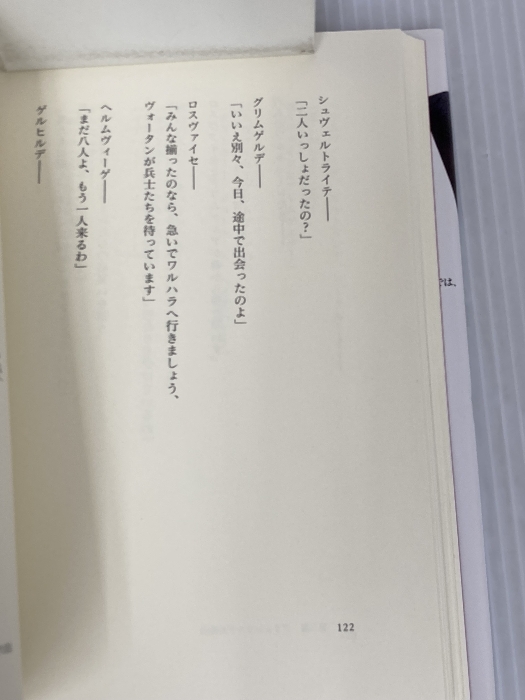 シュヴェルトライテ――
「二人いっしょだったの？」
グリムゲルデ――
「いいえ別々、今日、途中で出会ったのよ」
ロスヴァイセ――
「みんな揃ったのなら、急いでワルハラへ行きましょう、
ヴォータンが兵士たちを待っています」
ヘルムヴィーゲ――
「まだ八人よ、もう一人来るわ」
ゲルヒルデ――
122
では、